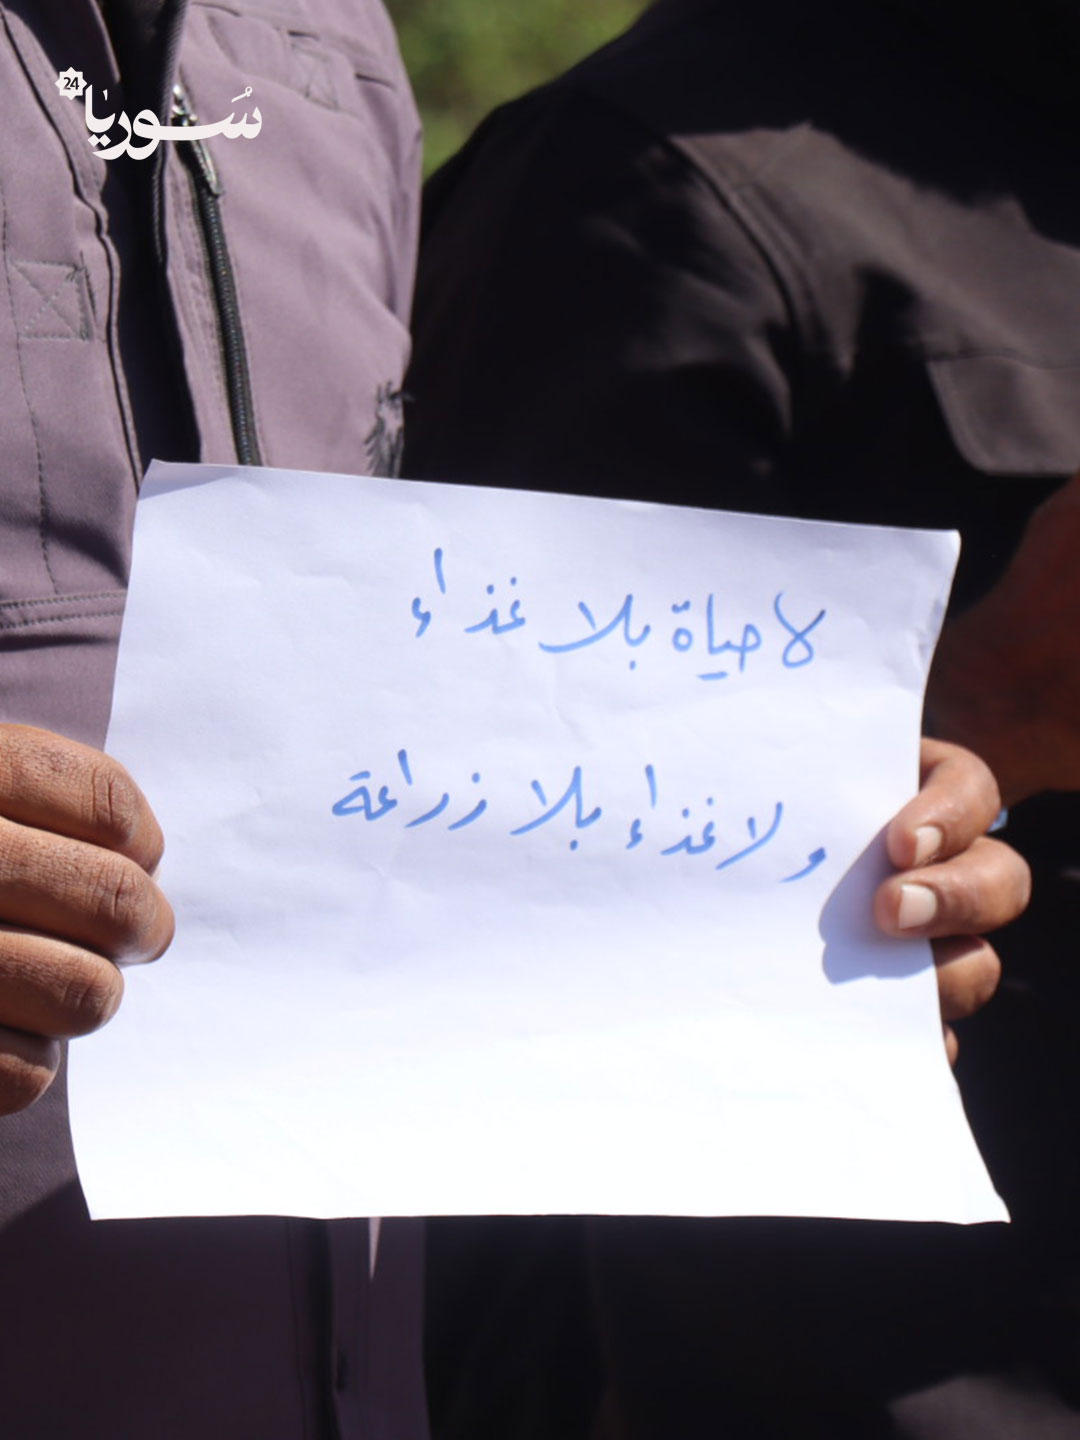 سُوريا 24
لا حياة بلا غذاء
ولا غذاء بلا زراعة